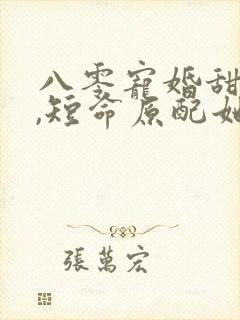 八零寵婚甜
,短命原配她
張萬宏